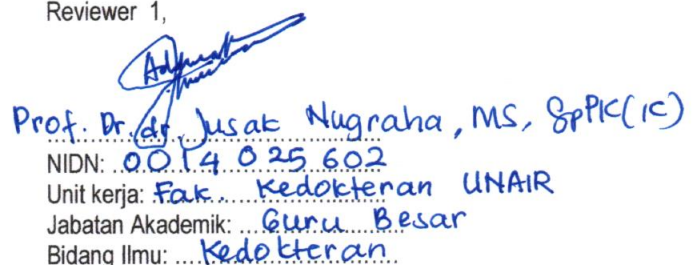 Reviewer 1,
Prof. Dr. dr. Jusak Nugraha, MS, SpPK(IC)
NIDN: 0014025602
Unit kerja: Fak. Kedokteran UNAIR
Jabatan Akademik: Guru Besar
Bidang Ilmu: Kedokteran